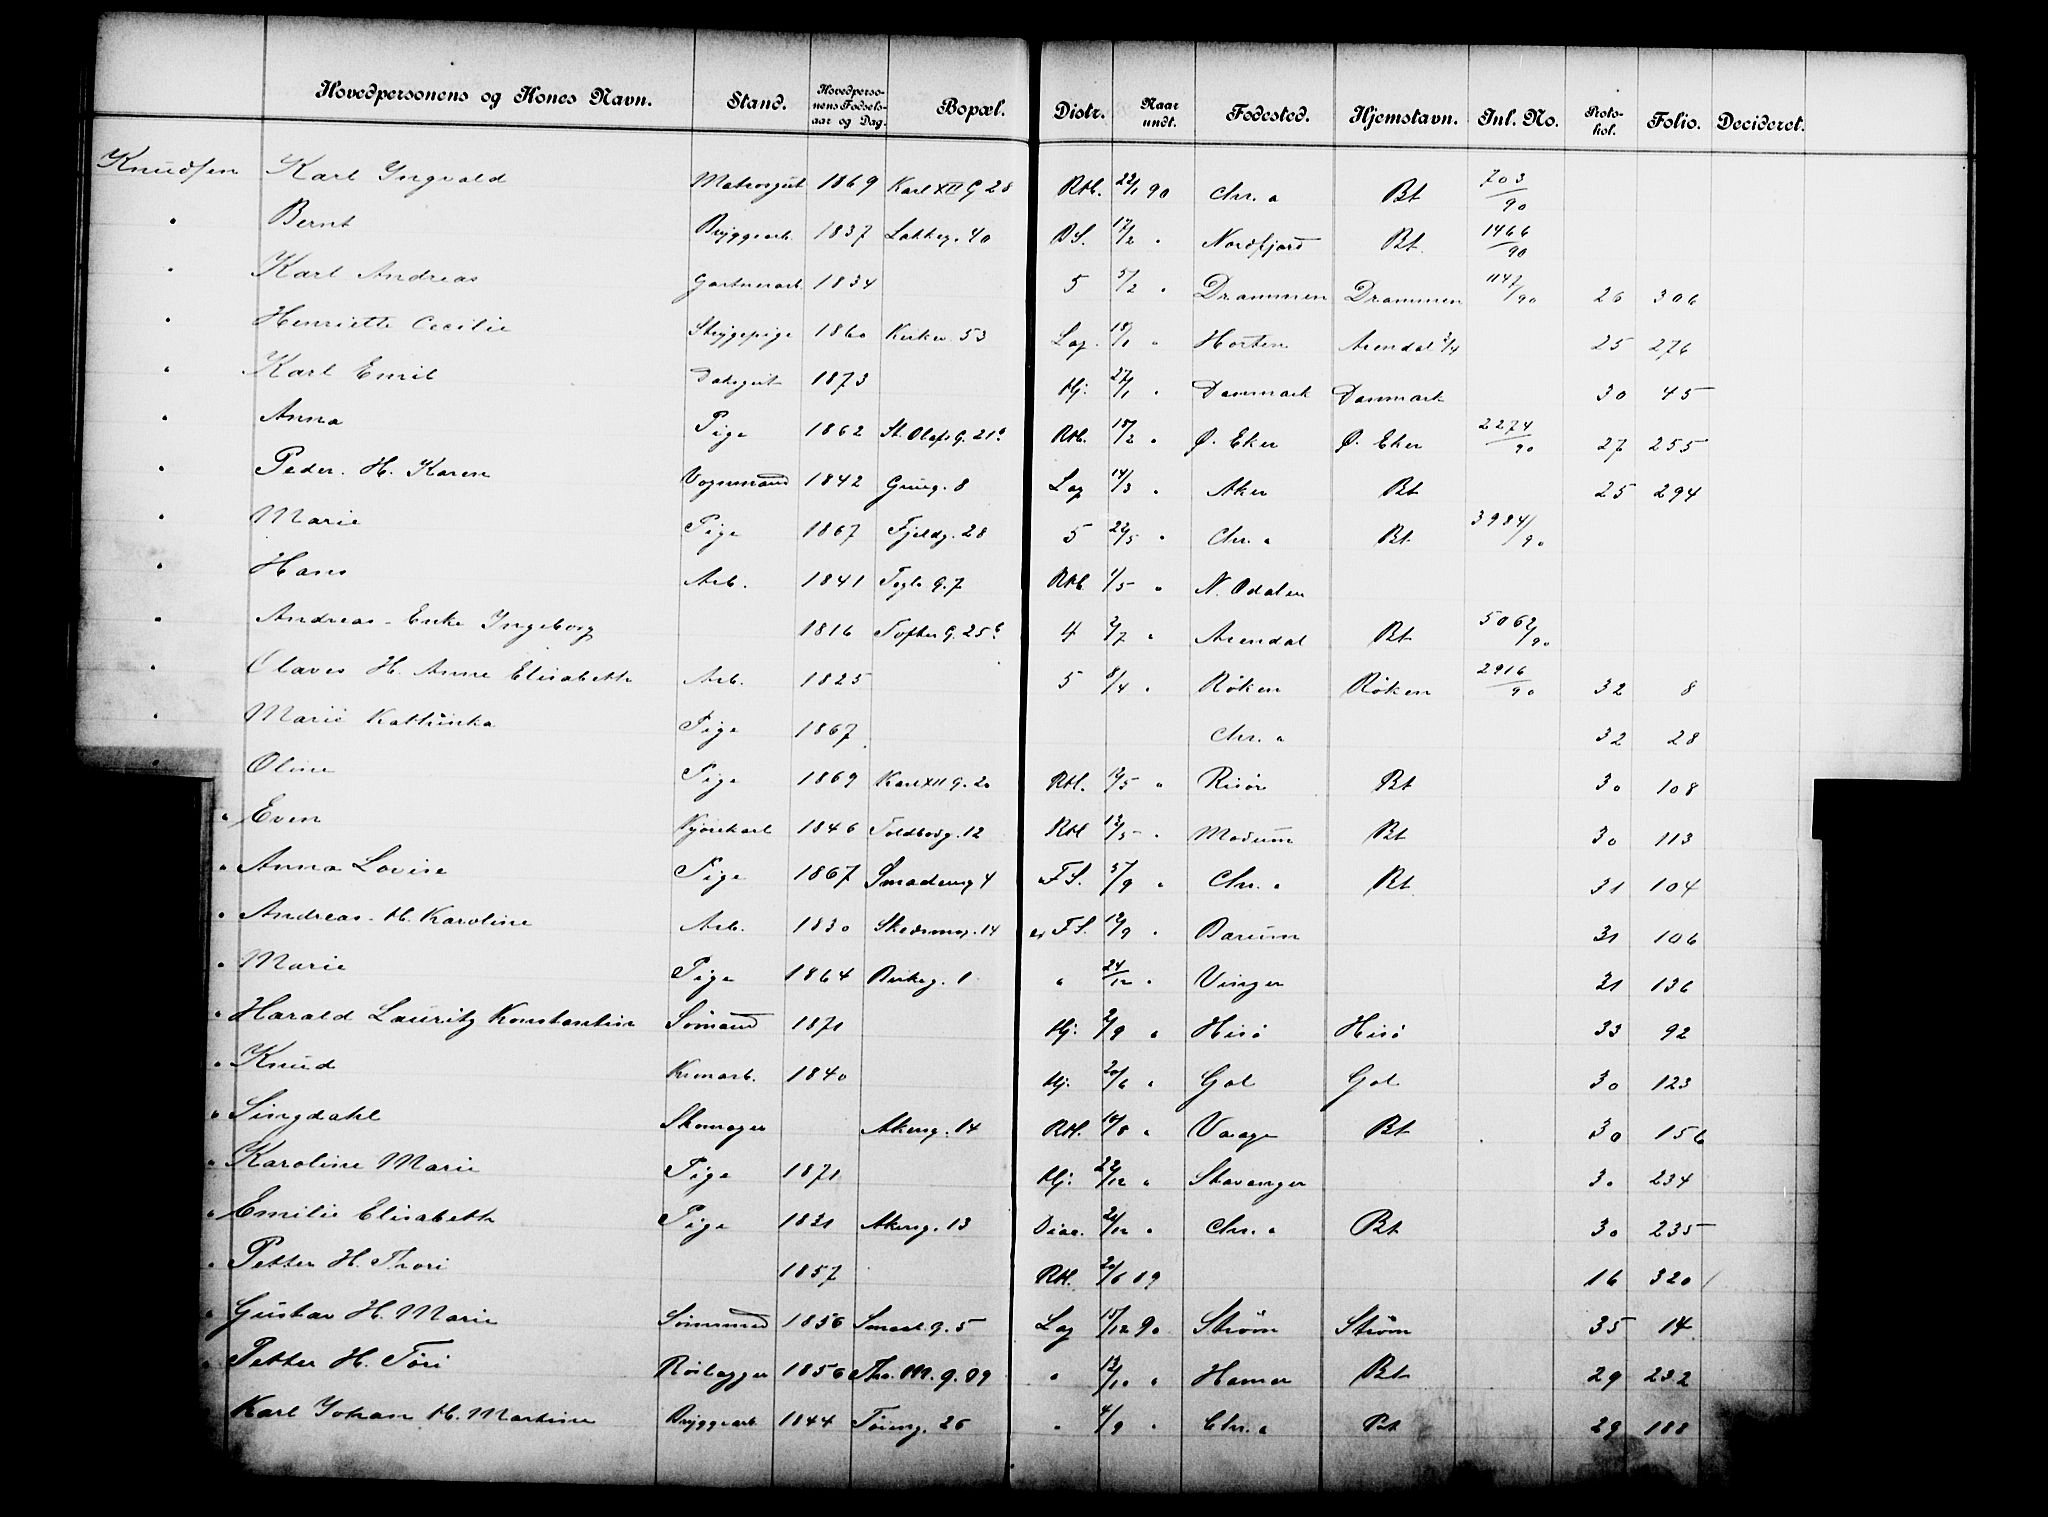 Hovedpersonens og Kones Navn. Stand. Hovedpersonens Fødselsaar og Dag. Bopæl. Distr. Naar undt. Fødested. Hjemstavn. Inl. No. Protokol. Folio. Decideret.
Knudsen Karl Ingvald Matrosgut 1869 Karl XII G 28 RH. 22/1 90 Chr.a Bt 703/90
" Bernt Bryggearb. 1837 Lakkeg. 40 DS. 17/2 " Nordfjord Bt 1466/90
" Karl Andreas Gartnerarb. 1834 5 5/2 " Drammen Drammen 1147/90 26 306
" Henriette Cecilie Strygepige 1860 Kirkev. 53 Lag. 18/1 " Horten Arendal 25 276
" Karl Emil Dæksgut 1873 Hj. 27/1 " Danmark Danmark 30 45
" Anna Pige 1862 St. Olafs G. 21 RH. 18/2 " Ø. Eker Ø. Eker 2274/90 27 255
" Peder. H. Karen Vognmand 1842 Grüg. 8 Lag 14/3 " Aker Bt 25 294
" Marie Pige 1867 Fjeldg. 28 5 22/5 " Chr.a Bt 3984/90
" Hans Arb. 1841 Tegls G. 7 RH 1/5 " N. Odalen
" Andreas - Enke Ingeborg 1816 Toftes G. 25 b 4 2/7 " Arendal Bt 5062/90
" Olaves H. Anne Elisabeth Arb. 1825 5 8/4 " Røken Røken 2916/90 32 8
" Marie Kathinka Pige 1867 Chr.a 32 28
" Oline Pige 1869 Karl XII G. 20 RH. 12/5 " Risør Bt 30 108
" Even Kjørekarl 1846 Toldbodg. 12 RH 12/5 " Modum Bt 30 113
" Anna Lovise Pige 1867 Smedeng 4 FS. 5/9 " Chr.a Bt. 31 104
" Andreas - H. Karoline Arb. 1830 Skedsmog. 14 FS. 12/9 " Bærum 31 106
" Marie Pige 1864 Birkeg. 1 " 24/12 " Vinger 31 136
" Harald Lauritz Konstantin Sømand 1871 Hj. 2/9 " Hisø Hisø 33 92
" Knud Kunarb. 1840 Hj. 20/6 " Gol Gol 30 123
" Singdahl Skomager Akersg. 14 RH. 18/8 " Vaage Bt 30 156
" Karoline Marie Pige 1871 Hj. 22/12 " Stavanger 30 234
" Emilie Elisabeth Pige 1831 Akersg. 13 Diac. 21/12 " Chr.a Bt 30 235
" Petter H. Thori 1857 RH. 20/6 89 16 320
" Gustav H. Marie Sømmand 1856 Smaal. g. 5 Lag 15/12 90 Strøm Strøm 35 14
" Petter H. Töri Rørlægger 1856 Thv. M. g. 89 " 13/10 " Hamar Bt 29 232
Karl Johan H. Martine Bryggearb 1844 Töieng. 26 " 4/9 " Chr.a Bt 29 188